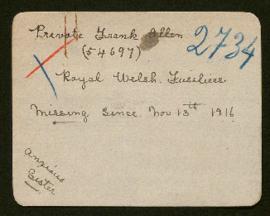 Private Frank Allen
2734
(54697)
Royal Welsh. Fusiliers.
Missing Since. Nov 13th 1916
Anxious
Sister